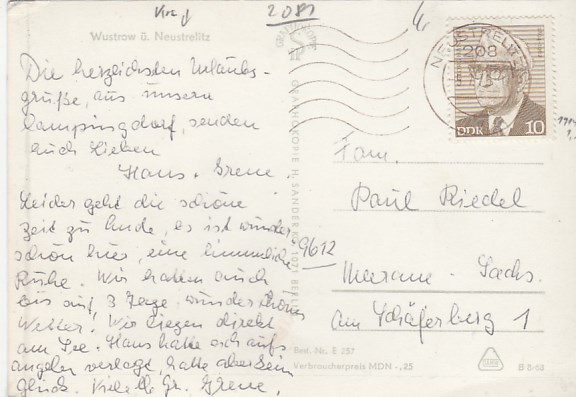 2081
Wustrow ü. Neustrelitz
NEUSTRELITZ
208
DDR 10
Die herzlichsten Urlaubs-
grüße, aus unserm
Campingdorf, senden
euch Lieben
Hans + Irene.
Leider geht die schöne
Zeit zu Ende, es ist wunder-
schön hier, eine himmliche
Ruhe. Wir hatten auch
bis auf 3 Tage, wunderschönes
Wetter. Wir liegen direkt
am See. Hans hatte sich aufs
angeln verlegt, hatte aber kein
Glück. Viele lb. Gr. Irene.
ORWOHKOPIE H. SANDER KG 1071 BERLIN
Fam.
Paul Riedel
9612
Meerane - Sachs.
Am Schäferberg 1
Best. Nr. E 257
Verbraucherpreis MDN -,25
B 8/63